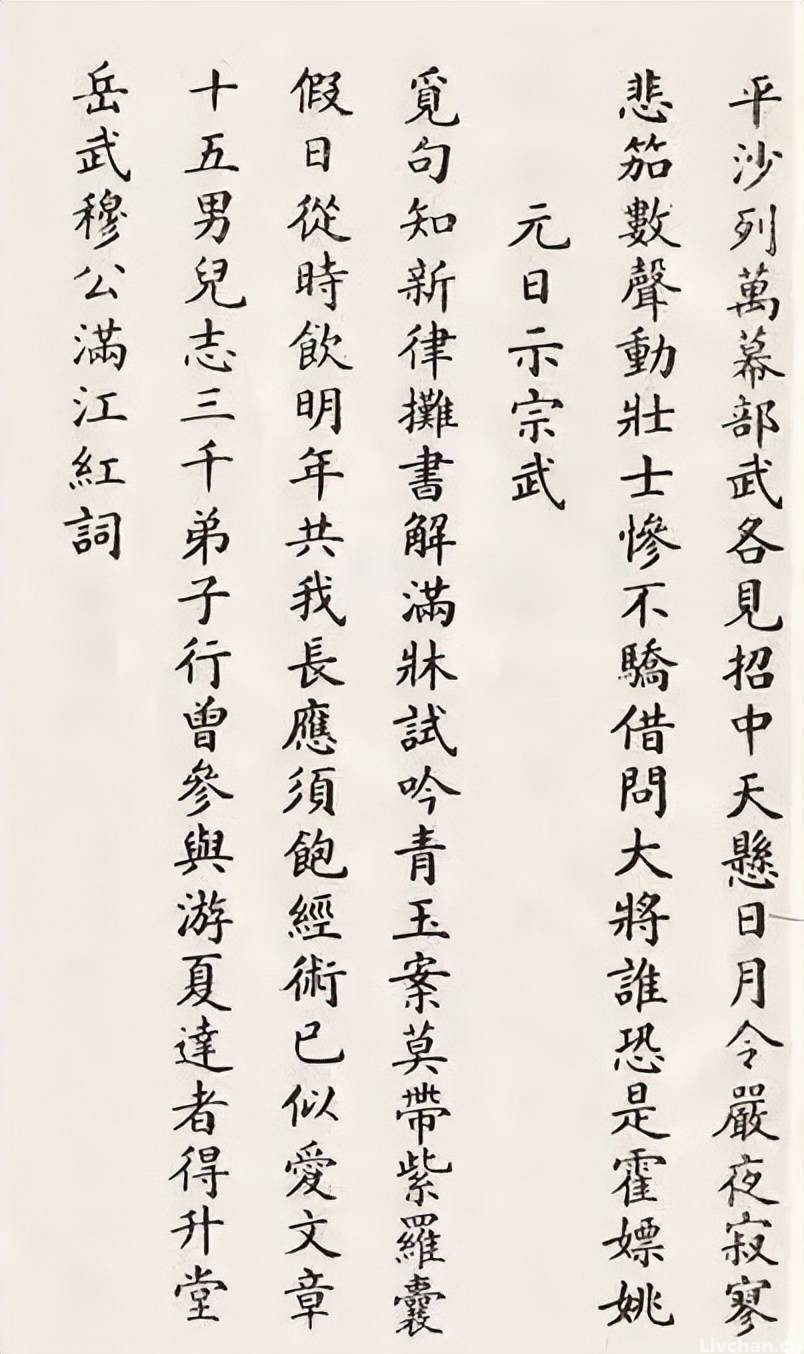 平沙列萬幕部武各見招中天懸日月令嚴夜寂寥
悲笳數聲動壯士慘不驕借問大將誰恐是霍嫖姚
元日示宗武
覓句知新律攤書解滿牀試吟青玉案莫帶紫羅囊
假日從時飲明年共我長應須飽經術已似愛文章
十五男兒志三千弟子行曾參與游夏達者得升堂
岳武穆公滿江紅詞
Livchan.cn